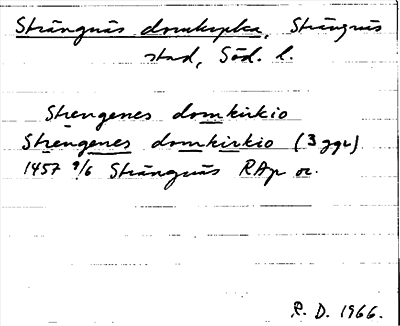 Strängnäs domkyrka, Strängnäs
stad, Söd. l.
Strengenes domkirkio
Strengenes domkirkio (3 ggr)
1457 9/6 Strängnäs RAp or.
R. D. 1966.